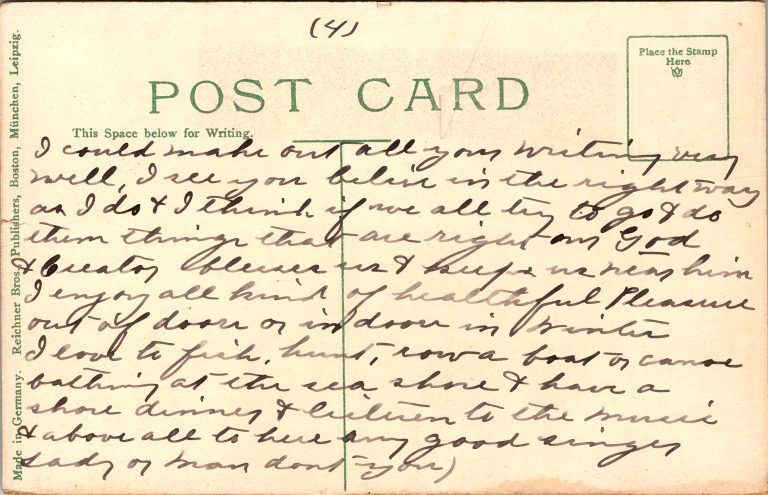 (4)
Place the Stamp
Here
POST CARD
This Space below for Writing.
Made in Germany. Reichner Bros., Publishers, Boston, München, Leipzig.
I could make out all your writing very
well, I see you belive in the right way
as I do & I think if we all try to go & do
them things that are right our God
& Creator blesses us & keeps us near him
I enjoy all kind of healthful Pleasure
out of doors or in doors in winter
I love to fish, hunt, row a boat or canoe
bathing at the sea shore & have a
shore dinner & listen to the music
& above all to here any good singer
Lady or man dont you)